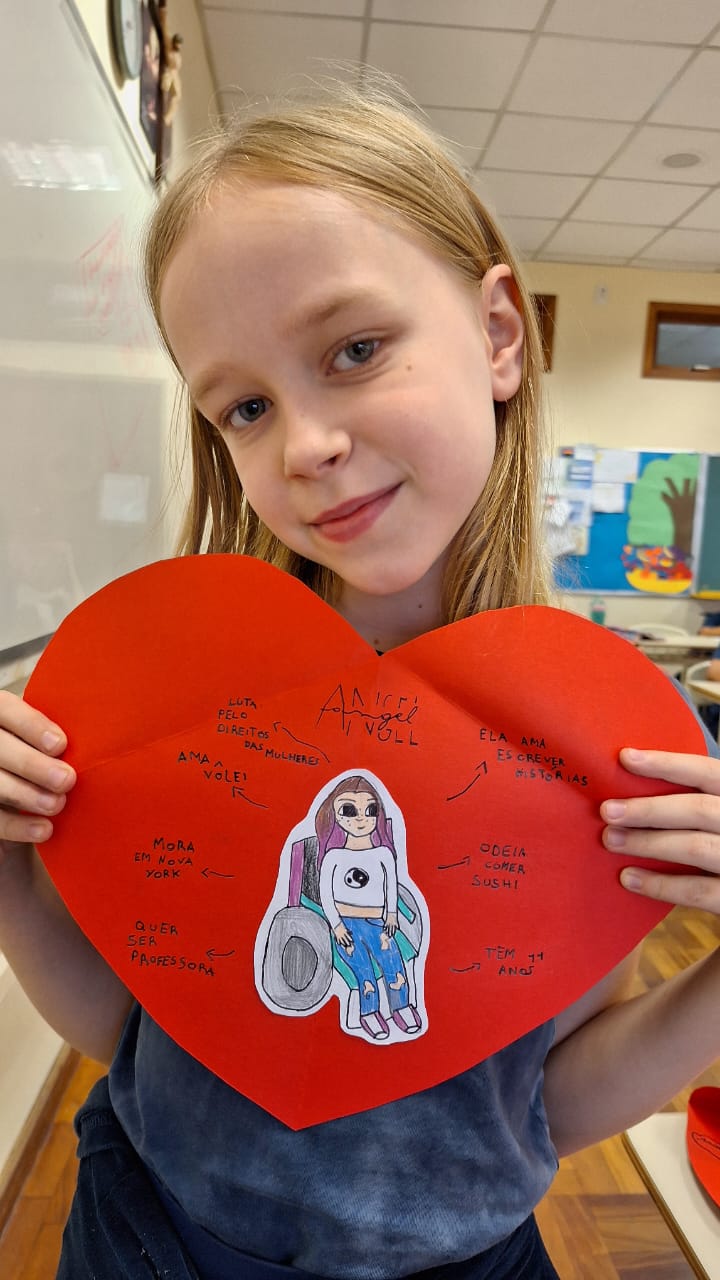 Angel
LUTA
PELO
DIREITOS
DAS MULHERES
AMA
VÔLEI
MORA
EM NOVA
YORK
QUER
SER
PROFESSORA
ELA AMA
ESCREVER
HISTÓRIAS
ODEIA
COMER
SUSHI
TÊM 11
ANOS